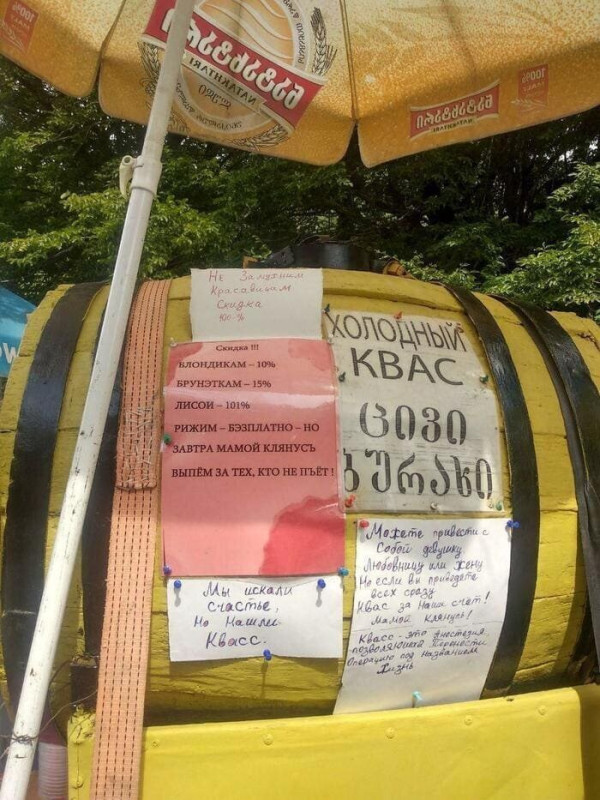 ნატახტარი
NATAKHTARI
100%
ნატახტარი
NATAKHTARI
Не Замужним
Красавицам
Скидка
100-%
Скидка !!!
БЛОНДИКАМ – 10%
БРУНЭТКАМ – 15%
ЛИСОИ – 101%
РИЖИМ – БЭЗПЛАТНО – НО
ЗАВТРА МАМОЙ КЛЯНУСЪ
ВЫПЁМ ЗА ТЕХ, КТО НЕ ПЪЁТ !
ХОЛОДНЫЙ
КВАС
ცივი
ბურახი
Мы искали
счастье,
Но Нашли
Квасс.
Можете привести с
Собой девушку
Любовницу или Жену
Но если вы приведёте
всех сразу
Квас за наш счёт!
Мамой Клянусь!
Квасс - это Анестезия
позволяющая перенести
Операцию под названием
Жизнь